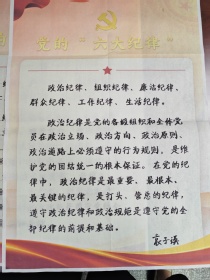 党的“六大纪律”
政治纪律、组织纪律、廉洁纪律、
群众纪律、工作纪律、生活纪律。
政治纪律是党的各级组织和全体党
员在政治立场、政治方向、政治原则、
政治道路上必须遵守的行为规则，是维
护党的团结统一的根本保证。在党的纪
律中，政治纪律是最重要、最根本、
最关键的纪律，是打头、管总的纪律，
遵守政治纪律和政治规矩是遵守党的全
部纪律的前提和基础。